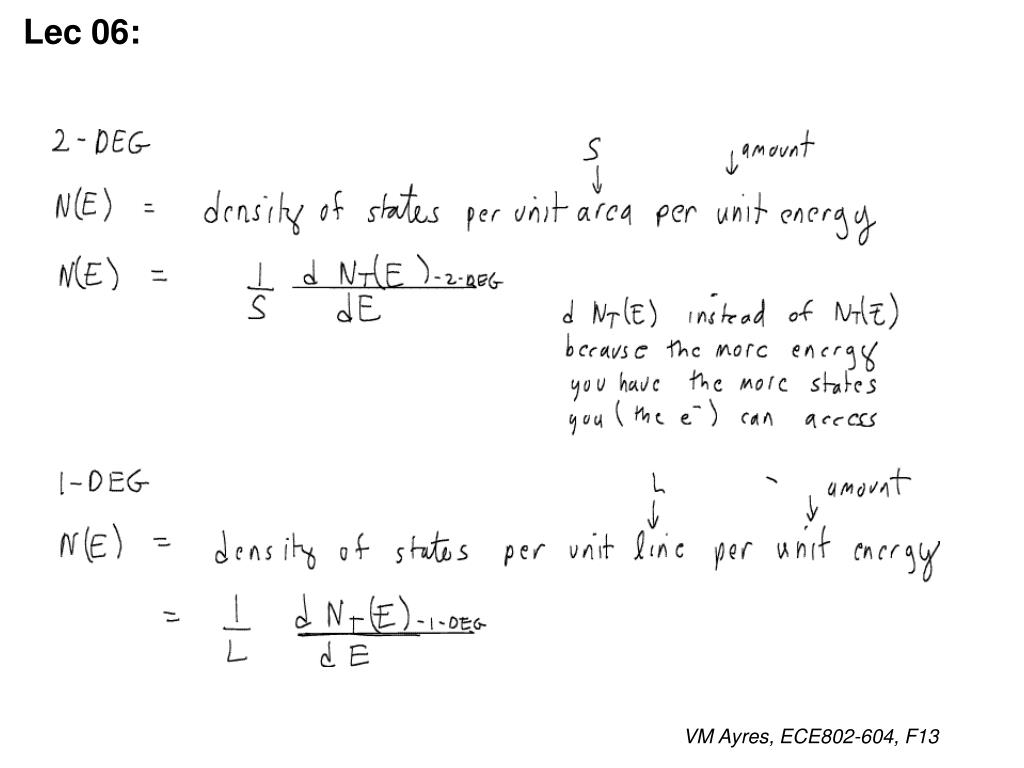 Lec 06:
2-DEG
S ↓ ↓ amount
N(E) = density of states per unit area per unit energy
N(E) = 1/S d N_T(E)-2-DEG / dE
d N_T(E) instead of N_T(E)
because the more energy
you have the more states
you (the e⁻) can access
1-DEG
L ↓ ↓ amount
N(E) = density of states per unit line per unit energy
= 1/L d N_T(E)-1-DEG / dE
VM Ayres, ECE802-604, F13